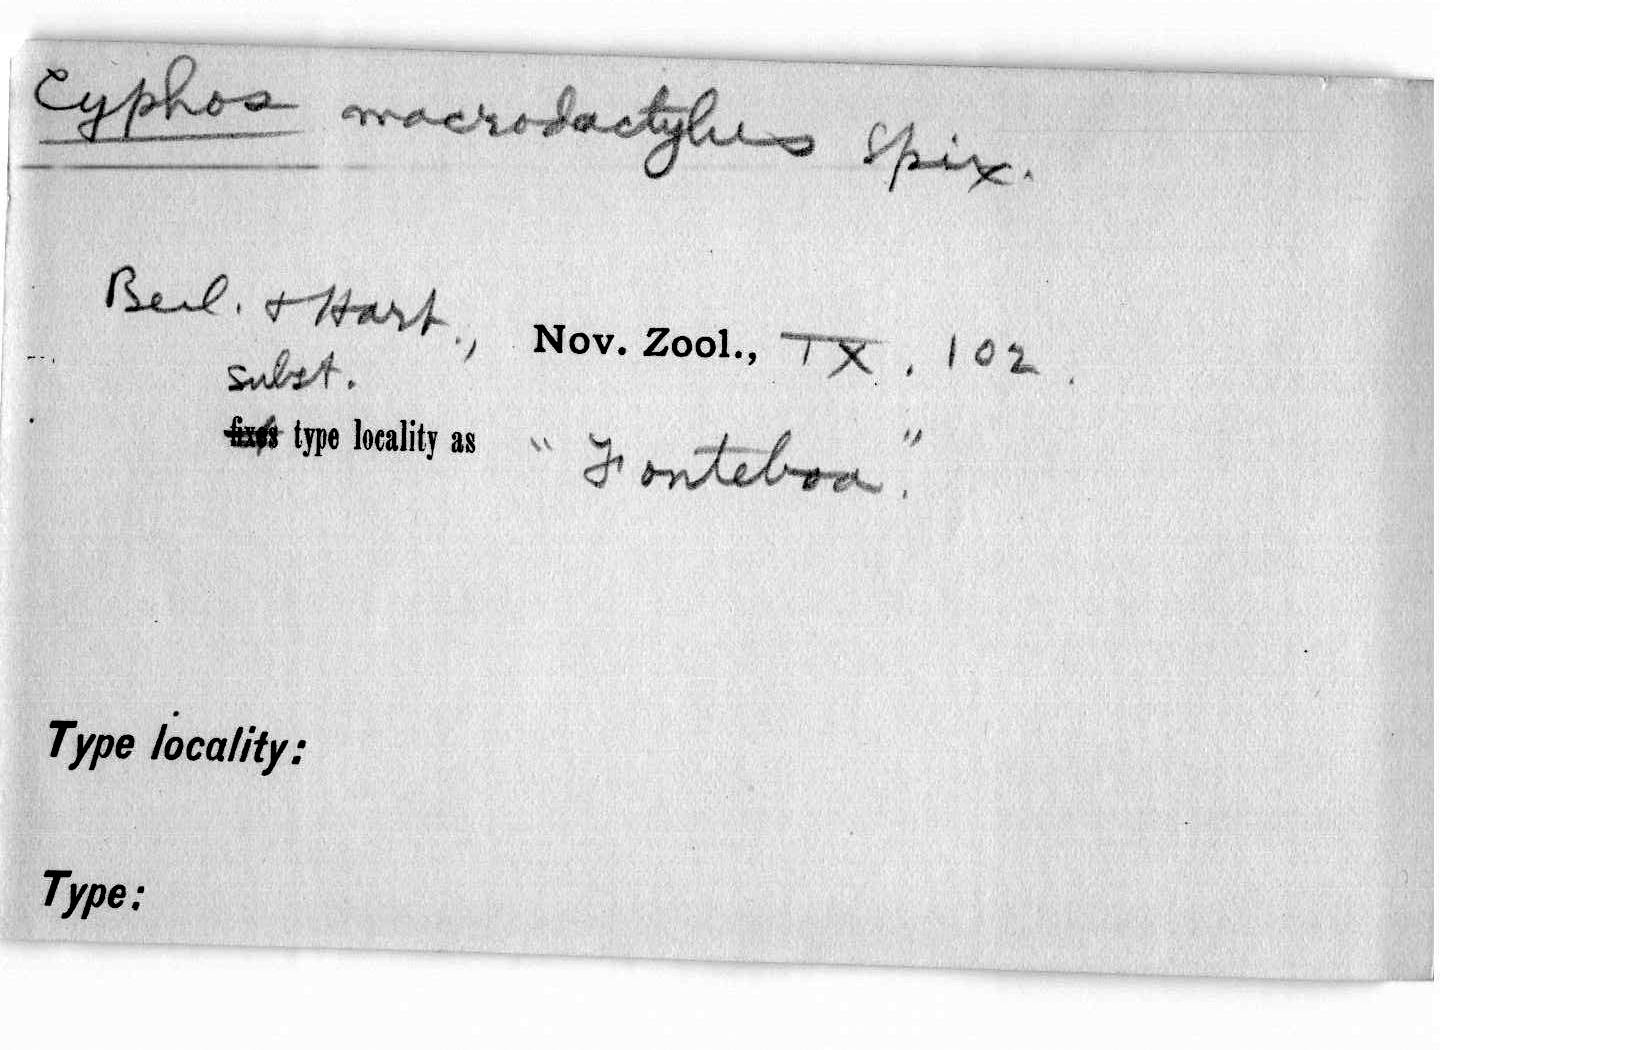 Cyphos macrodactylus Spix.
Berl. + Hart., Nov. Zool., IX, 102.
subst.
fixes type locality as "Fonteboa."
Type locality:
Type: